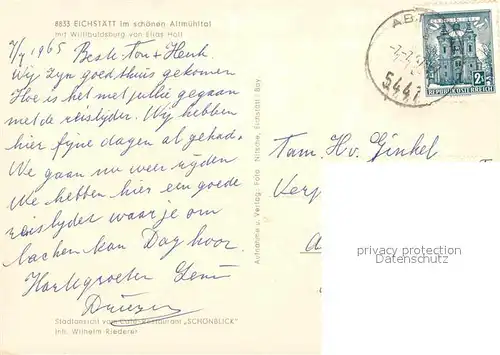 8833 EICHSTÄTT im schönen Altmühltal
mit Willibaldsburg von Elias Holl
7/7 1965 Beste Ton + Henk.
Wij zijn goed thuis gekomen
Hoe is het met jullie gegaan
met de reistijder. Wij hebben
hier fijne dagen al gehad.
We gaan nu weer rijden
We hebben hier een goede
reislijder waar je om
lachen kan Dag hoor.
Hart groeten
Stadtansicht vom Café-Restaurant „SCHÖNBLICK"
Inh. Wilhelm Riederer
Aufnahme u. Verlag: Foto Nitsche, Eichstätt, Bay.
AB
5441
REPUBLIK ÖSTERREICH
2S
Fam. Hv. Ginkel
privacy protection
DATENSCHUTZ